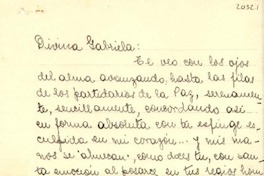 20321
Divina Gabriela:
Te veo con los ojos
del alma avanzando, hasta las filas
de los partidarios de la Paz, serenamen-
te, sencillamente, concordando así
en forma absoluta con tu esfinge es-
culpida en mi corazón... y mis ma-
nos se "ahuecan", como dices tu, con san-
ta emoción al posarse en tus regios hom